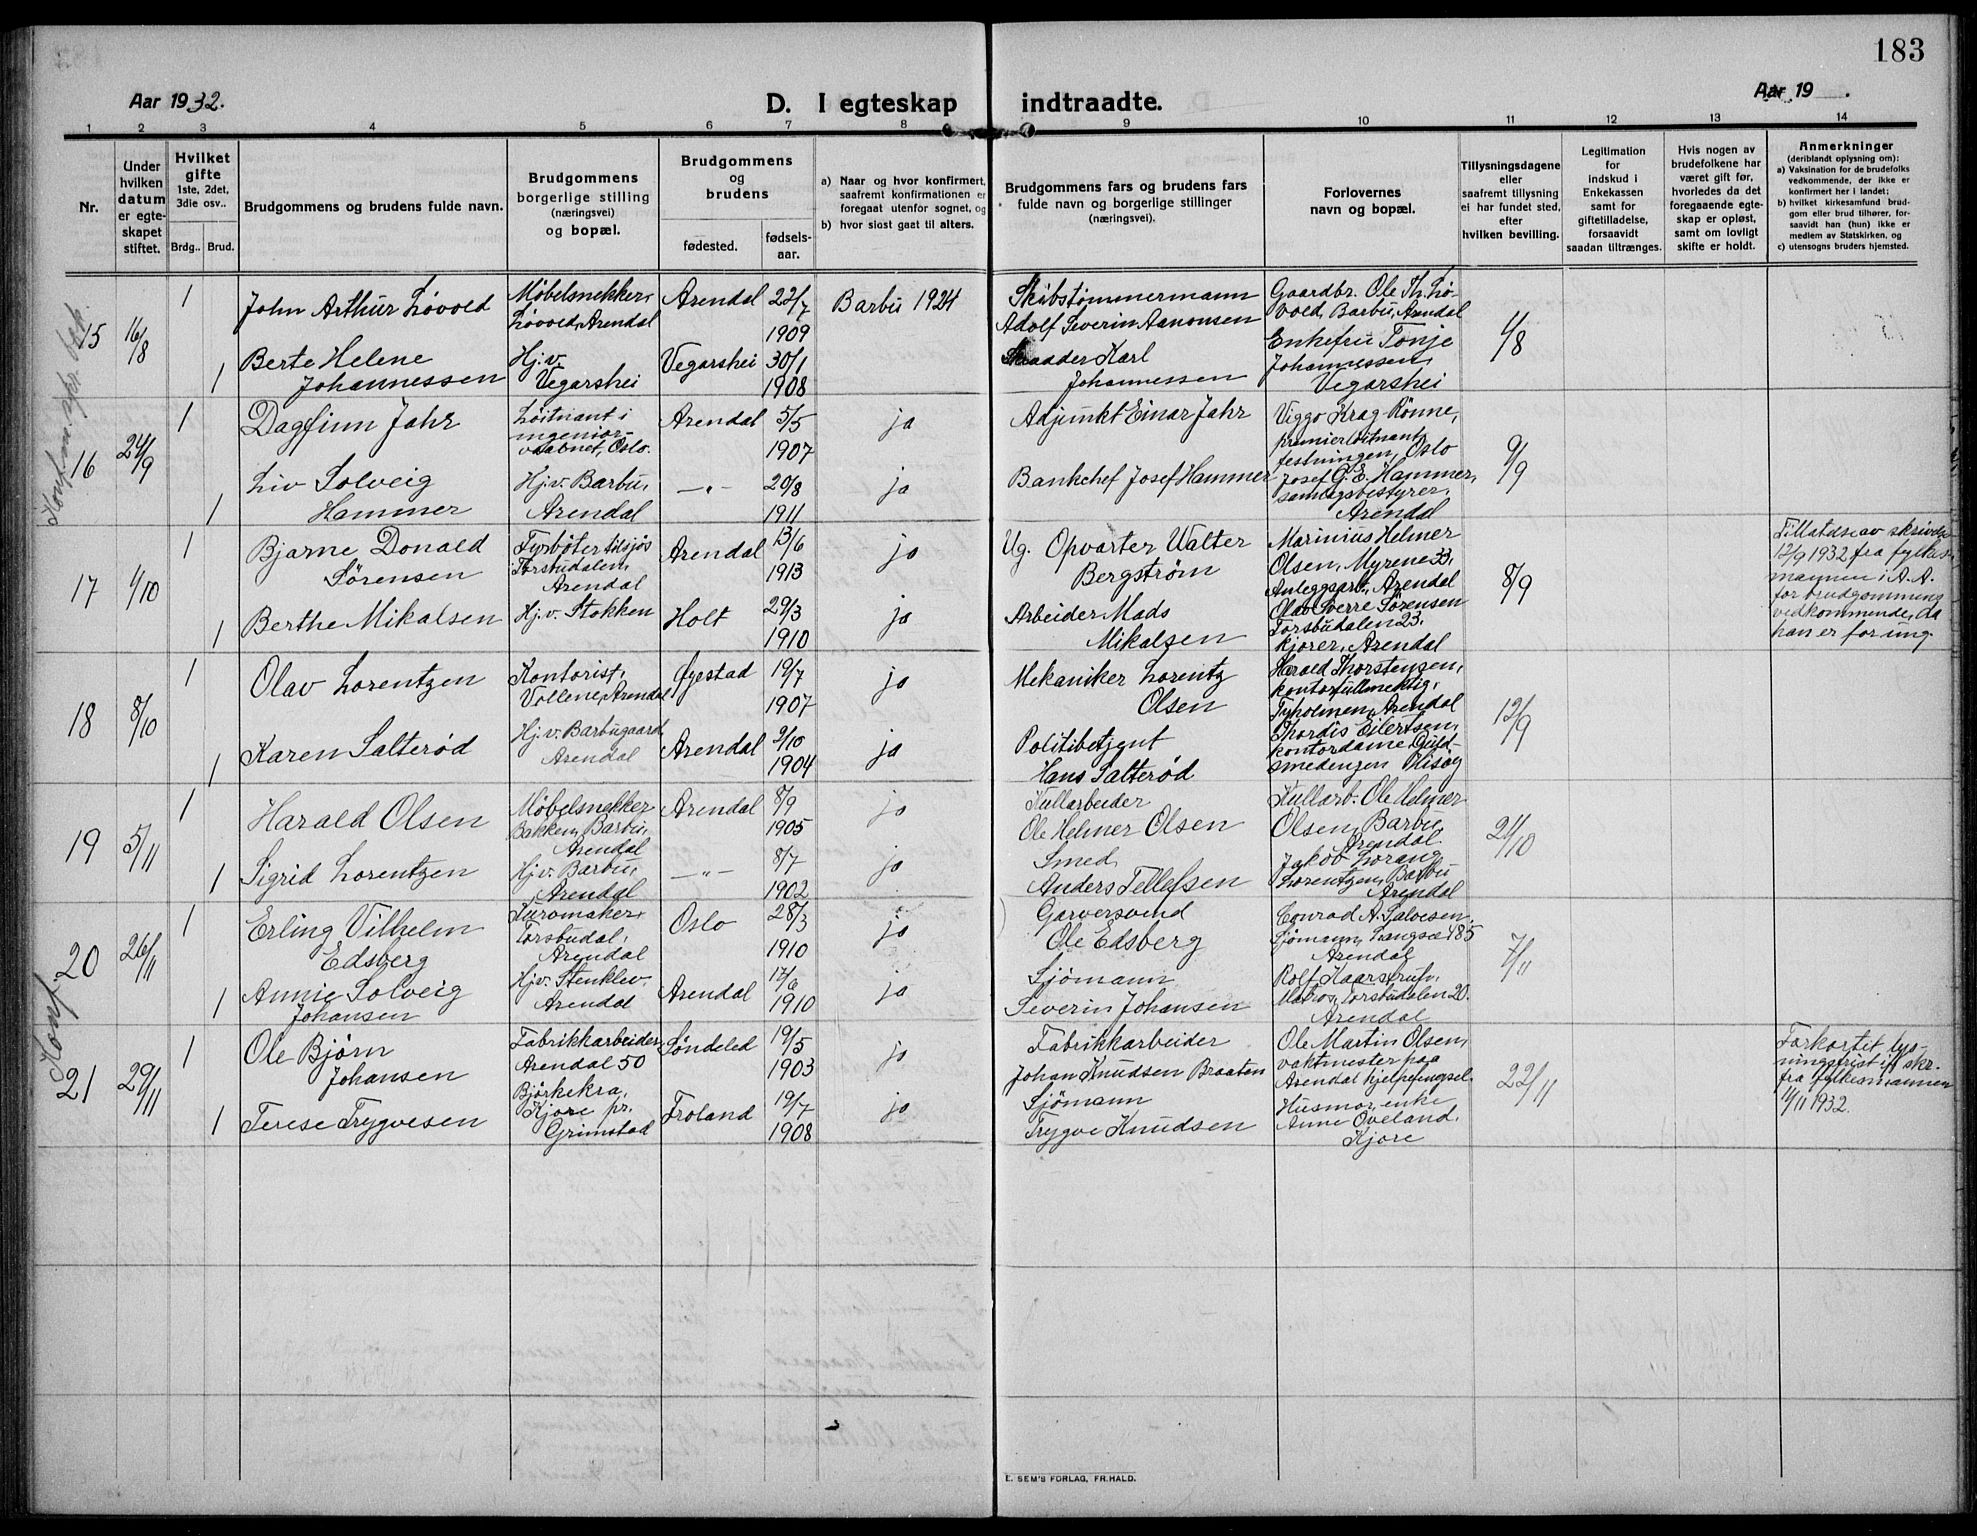 183
Aar 1932.
D. I egteskap indtraadte.
Aar 19 .
1 2 3 4 5 6 7 8 9 10 11 12 13 14
Nr.
Under
hvilken
datum
er egte-
skapet
stiftet.
Hvilket
gifte
1ste, 2det,
3die osv..
Brdg.. Brud.
Brudgommens og brudens fulde navn.
Brudgommens
borgerlige stilling
(næringsvei)
og bopæl.
Brudgommens
og
brudens
fødested.
fødsels-
aar.
a) Naar og hvor konfirmert,
saafremt konfirmationen er
foregaat utenfor sognet, og
b) hvor sidst gaat til alters.
Brudgommens fars og brudens fars
fulde navn og borgerlige stillinger
(næringsvei).
Forlovernes
navn og bopæl.
Tillysningsdagene
eller
saafremt tillysning
ei har fundet sted,
efter
hvilken bevilling.
Legitimation
for
indskud i
Enkekassen
samt for
giftetilladelse,
forsaavidt
saadan tiltrænges.
Hvis nogen av
brudefolkene har
været gift før,
hvorledes da det
foregaaende egte-
skap er opløst,
samt om lovligt
skifte er holdt.
Anmerkninger
(deriblandt oplysning om):
a) Vaksination for de brudefolks
vedkommende, der ikke er
konfirmert her i landet;
b) hvilket kirkesamfund brud-
gom eller brud tilhører, for-
saavidt han (hun) ikke er
medlem av Statskirken, og
c) utensogns bruders hjemsted.
15
16/8
1
John Arthur Løvold
Møbelsnekker,
Løvold, Arendal
Arendal
22/7
1909
Barbu 1924
Skibstømmermann
Adolf Severin Aanonsen
Gaardbr. Ole Th. Lø-
vold, Barbu, Arendal
4/8
1
Berte Helene
Johannessen
Hj.v.
Vegarshei
Vegarshei
30/1
1908
Karl
Johannessen
Enkefru Tonje
Johannessen,
Vegarshei
16
24/9
1
Dagfinn Jahr
Løitnant i
ingeniør-
vaabnet, Oslo.
Arendal
5/5
1907
ja
Adjunkt Einar Jahr
Viggo Krag Rønne,
premierløitnant
festningen, Oslo
9/9
1
Liv Solveig
Hammer
Hj.v. Barbu,
Arendal
—"—
20/8
1911
ja
Bankchef Josef Hammer
Josef G. E. Hammer,
samlagsbestyrer,
Arendal
17
1/10
1
Bjarne Donald
Sørensen
Fyrbøter tilsjøs
Torsbudalen,
Arendal
Arendal
13/6
1913
ja
Ug. Opvarter Walter
Bergstrøm
Marinius Helmer
Olsen, Myrene 33,
Anleggsarb., Arendal
8/9
Tillatdse av skrivelse
12/9 1932 fra fylkes-
mannen i A. A.
for brudgommens
vedkommende, da
han er for ung.
1
Berthe Mikalsen
Hj.v. Stokken
Holt
29/3
1910
ja
Arbeider Mads
Mikalsen
Olav Sverre Sørensen
Torsbudalen 23,
kjører, Arendal
18
8/10
1
Olav Lorentzen
Kontorist,
Vollene, Arendal
Øyestad
19/7
1907
ja
Mekaniker Lorentz
Olsen
Harald Thorstensen,
kontorfullmektig,
Tyholmen, Arendal
12/9
1
Karen Salterød
Hj.v. Barbugaard
Arendal
Arendal
2/10
1904
ja
Politibetjent
Hans Salterød
Thordis Eilertsen,
kontordame Guld-
smedengen Hisøy
19
5/11
1
Harald Olsen
Møbelsnekker
Bakken, Barbu,
Arendal
Arendal
8/9
1905
ja
Kullarbeider
Ole Helmer Olsen
Kullarb. Ole Helmer
Olsen, Barbu,
Arendal.
21/10
1
Sigrid Lorentzen
Hj.v. Barbu,
Arendal
—"—
8/7
1902
ja
Smed
Anders Tellefsen
Jakob Lorang
Lorentzen, Barbu
Arendal
20
26/11
1
Erling Vilhelm
Edsberg
Kurvmaker,
Torsbudal,
Arendal
Oslo
28/3
1910
ja
Garversvend
Ole Edsberg
Conrad A. Salvesen,
Sjømann, Langsæ 485
Arendal
7/11
1
Annie Solveig
Johansen
Hjv. Stenklev.
Arendal
Arendal
17/6
1910
ja
Sjømann
Severin Johansen
Rolf Kaarstrup,
Matros, Torsbudalen 20.
Arendal
21
29/11
1
Ole Bjørn
Johansen
Fabrikkarbeider,
Arendal 50
Søndeled
19/5
1903
ja
Fabrikkarbeider
Johan Knudsen Braaten
Ole Martin Olsen,
vaktmester paa
Arendal hjelpefengsel.
22/11
Forkortet lys-
ningsfrist ifl. skr.
fra fylkesmannen
11/11 1932.
1
Terese Trygvesen
Bjørkekra,
Kjore pr.
Grimstad
Froland
19/7
1908
ja
Sjømann
Trygve Knudsen
Husmor, enke
Anne Oveland.
Kjore
E. SEM'S FORLAG, FR.HALD.